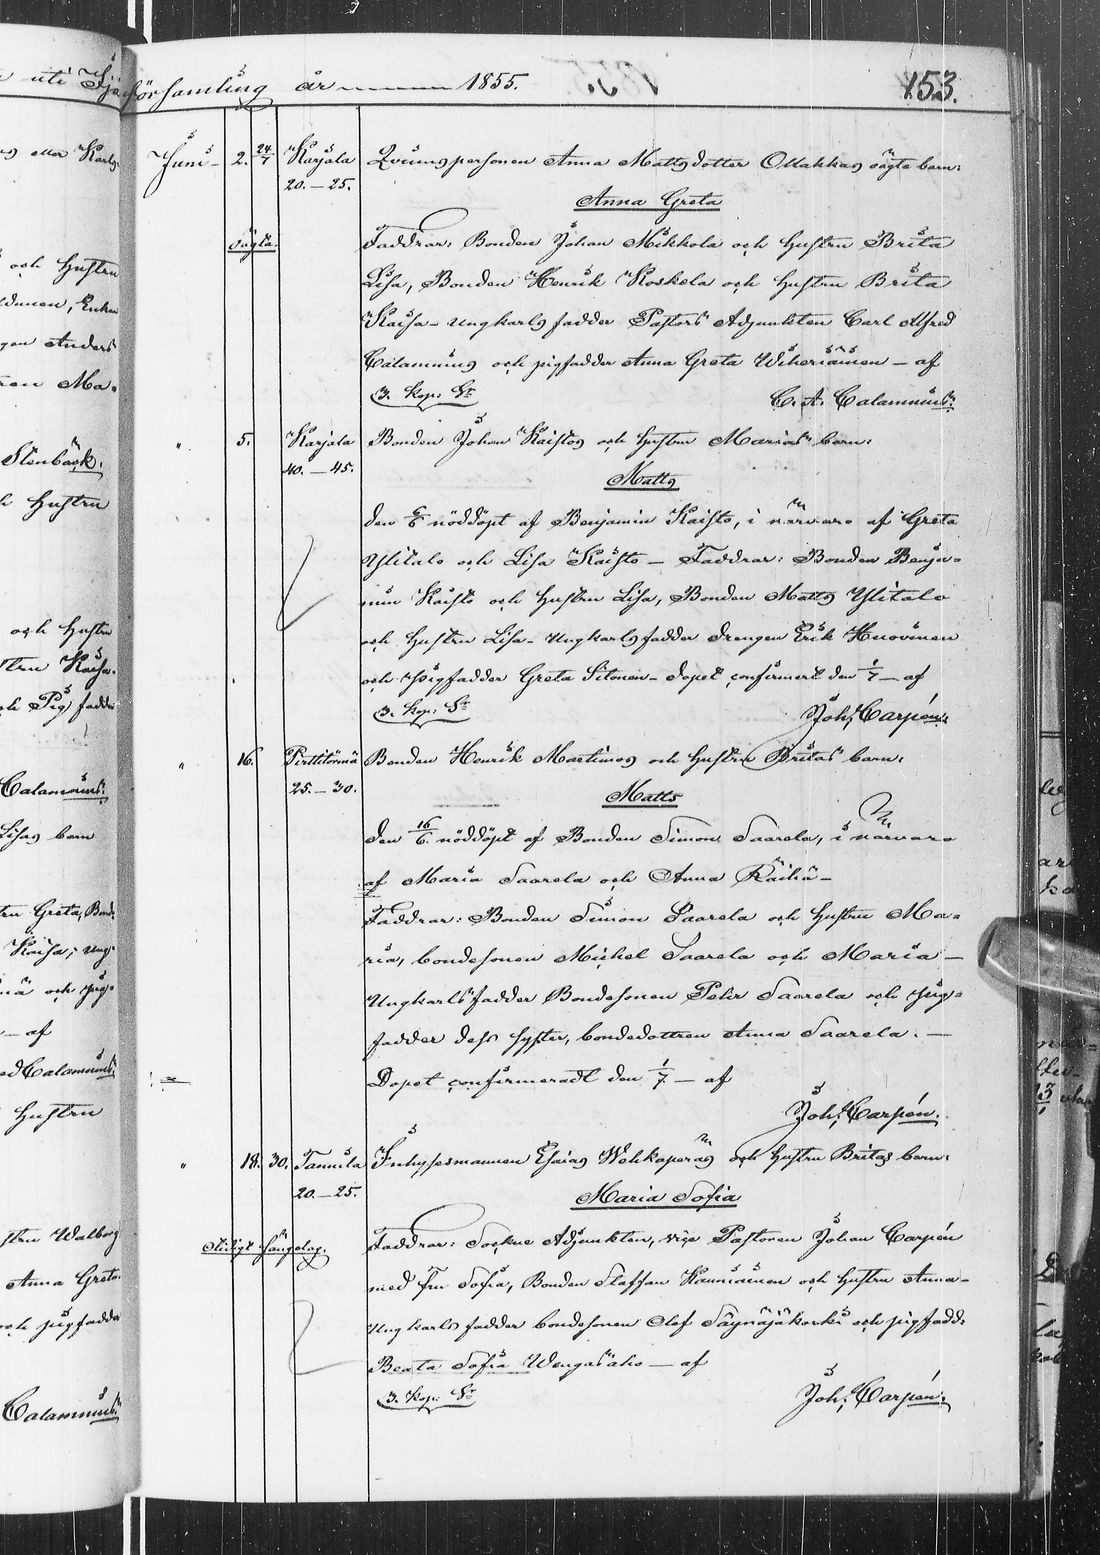 församling år 1855. 153.
Juni 2. 24/7 Karjala Qvinnspersonen Anna Mattsdotter Ollakkas oägta barn:
20.–25.
Anna Greta
oägta
Faddrar: Bonden Johan Mikkola och hustru Brita
Lisa, Bonden Henrik Koskela och hustru Brita
Kaisa – Ungkarlsfadder Pastors Adjunkten Carl Alfred
Calamnius och pigfadder Anna Greta – af
3. kop: Sr C. A. Calamnius.
" 5. Karjala Bonden Johan Kaistos och hustru Marias barn:
40.–45.
Matts
den nöddöpt af Benjamin Kaisto, i närvaro af Greta
Ylitalo och Lisa Kaisto – Faddrar: Bonden Benja-
min Kaisto och hustru Lisa, Bonden Matts Ylitalo
och hustru Lisa – Ungkarlsfadder drengen Erik Huovinen
och Pigfadder Greta Sitonen – dopet confirmert den 1/7 – af
3. kop: Sr Joh: Carpén.
" 16. Pirttikönnä Bonden Henrik Martimos och hustru Britas barn:
25.–30.
Matts
den 16/6. nöddöpt af Bonden Simon Saarela, i närvaro
af Maria Saarela och Anna Räihä –
Faddrar: Bonden Simon Saarela och hustru Ma-
ria, bondesonen Michel Saarela och Maria –
Ungkarlsfadder Bondesonen Petter Saarela och pig-
fadder dess syster, bondedottren Anna Saarela. –
Dopet confirmeradt den 1/7 – af
Joh: Carpén.
" 18. 30. Tannila Inhysesmannen Esaias Wehkaperäs och hustru Britas barn:
20.–25.
Maria Sofia
otidigt sängelag.
Faddrar: Sockne Adjunkten, vice Pastoren Johan Carpén
med fru Sofia, Bonden Staffan Hanniainen och hustru Anna –
Ungkarls fadder bondesonen Olof Säynäjäkorki och pigfadd:
Beata Sofia Wengasaho – af
3. kop: Sr Joh: Carpén.